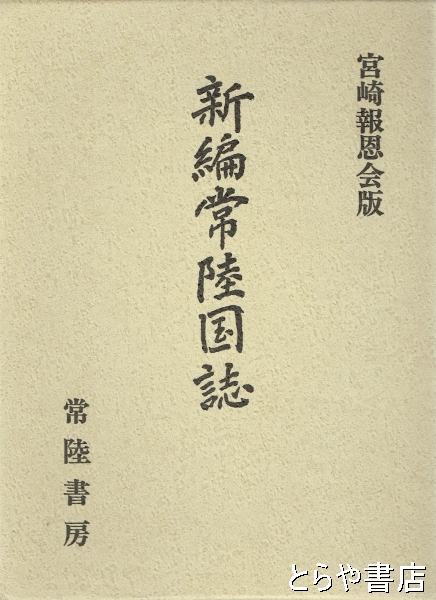 宮崎報恩会版
新編常陸国誌
常陸書房
とらや書店